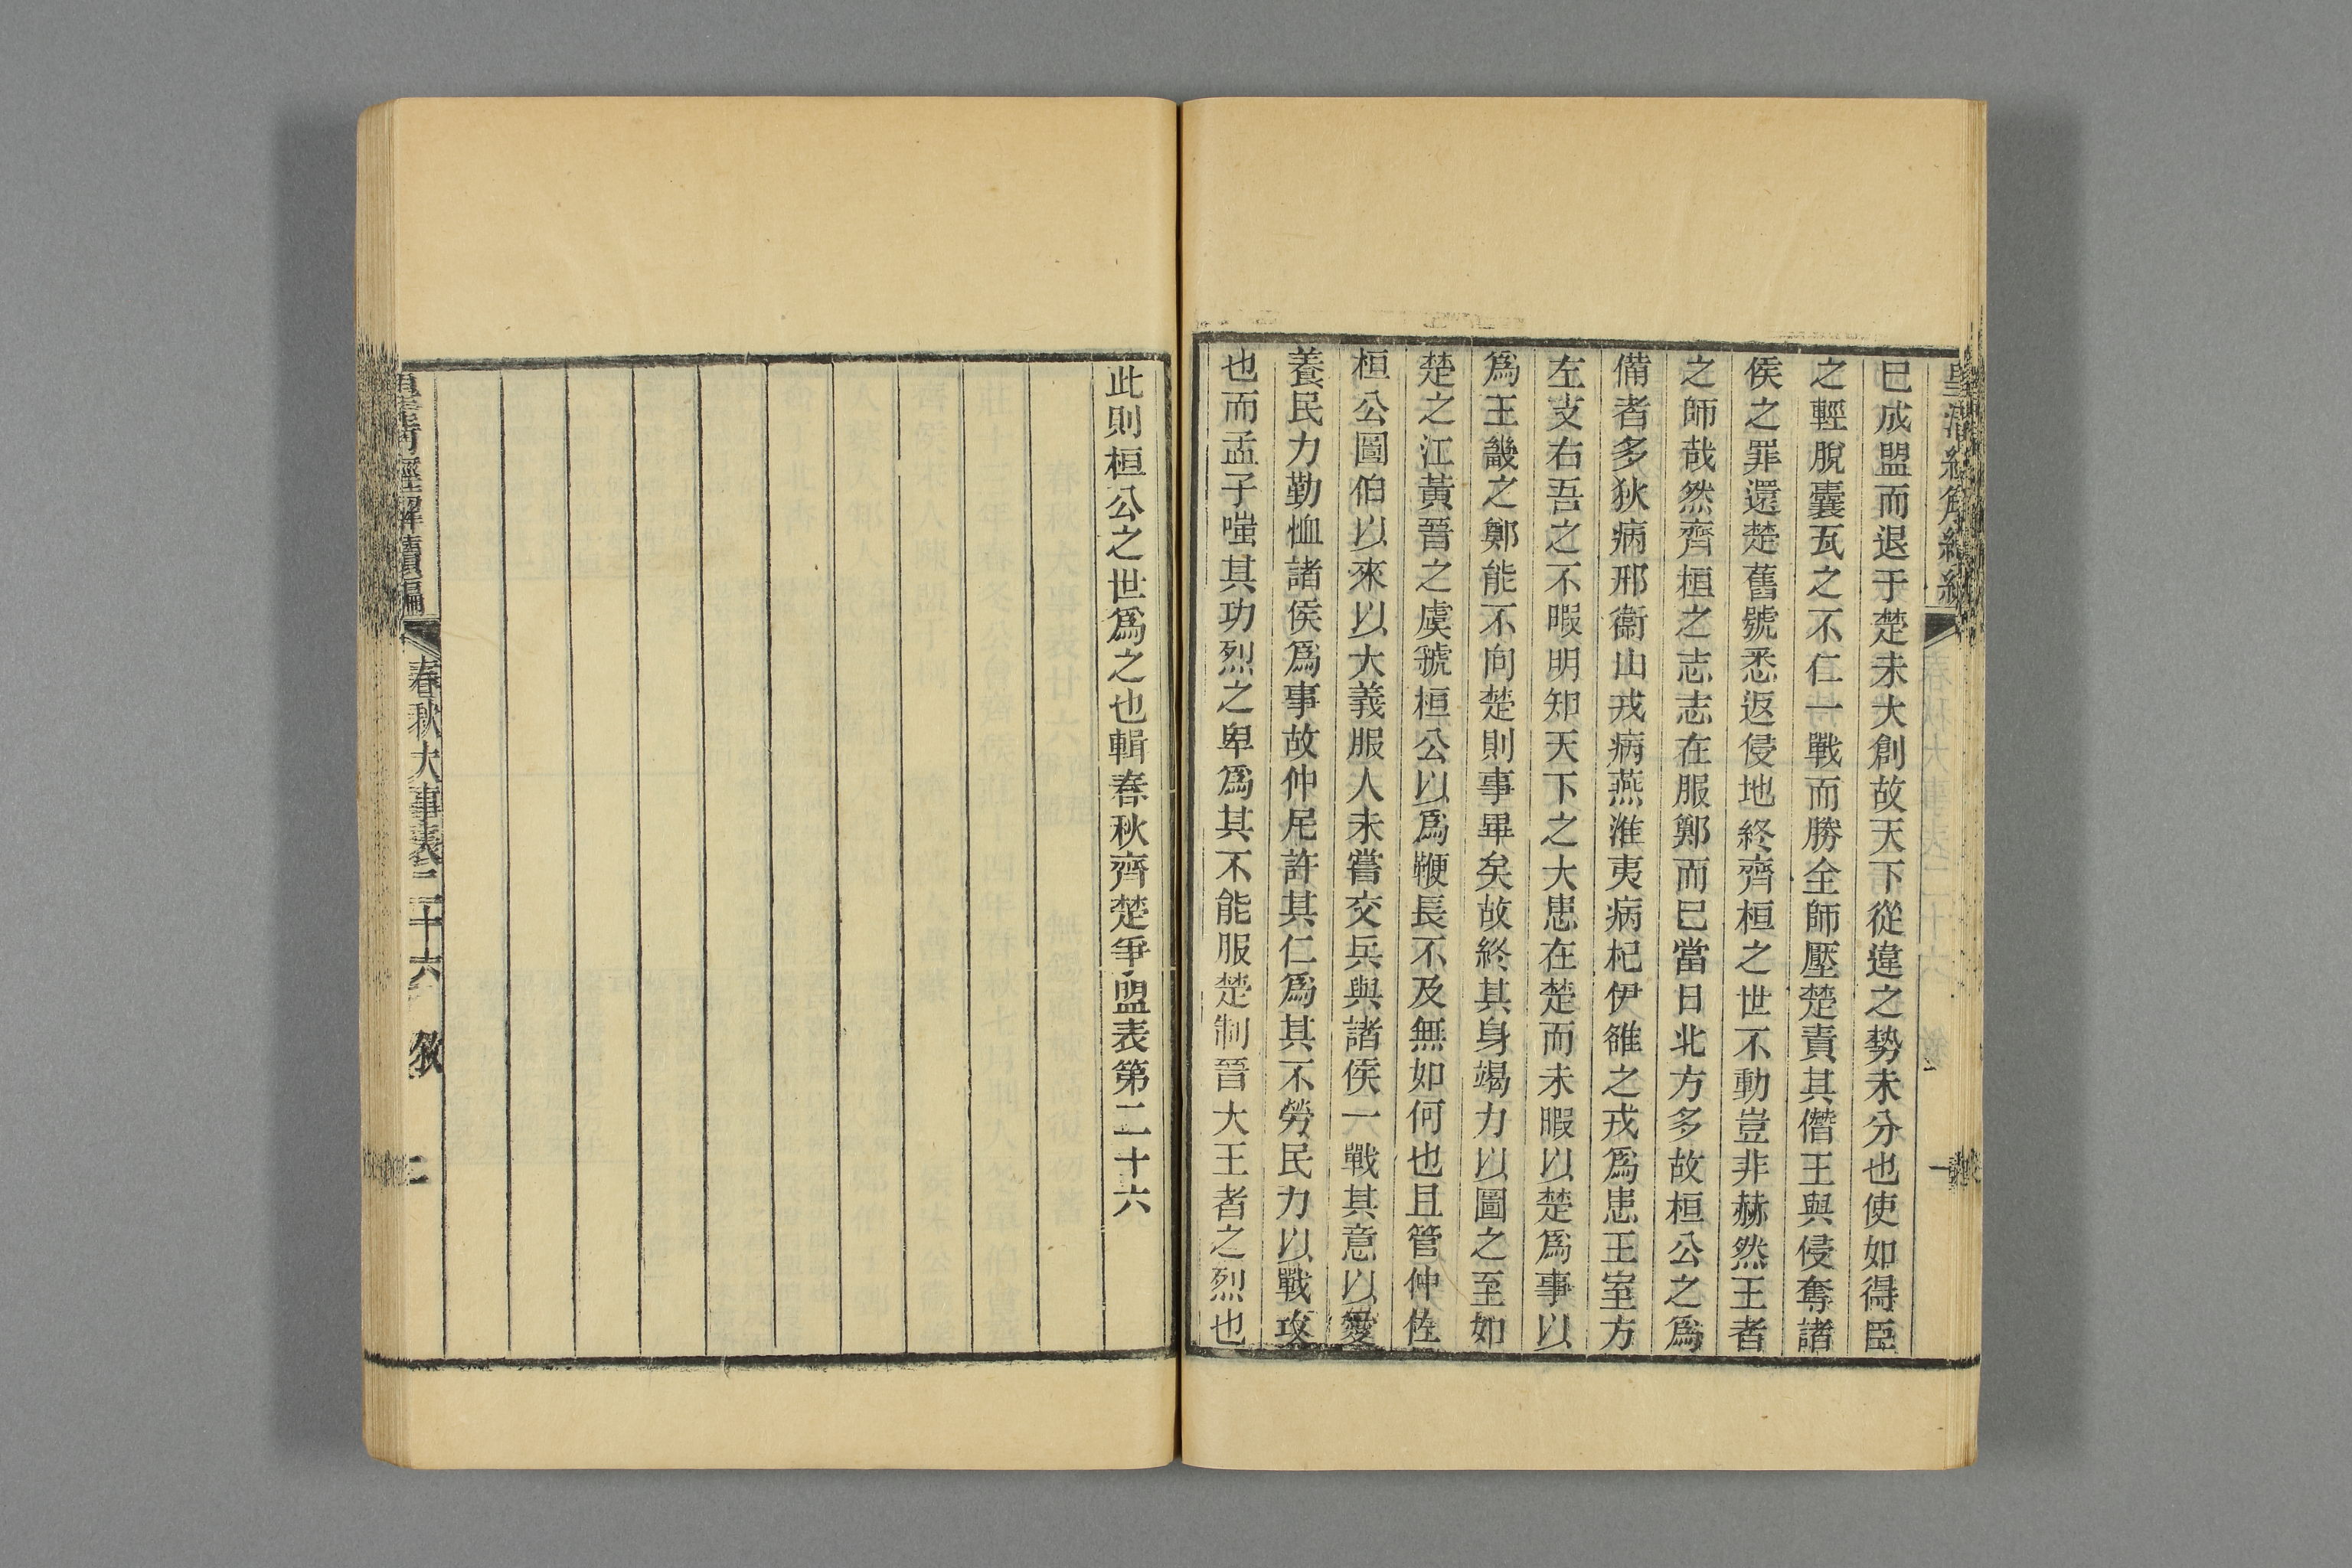 已成盟而退于楚未大創故天下從違之勢未分也使如得臣
之輕脫囊瓦之不仁一戰而勝全師壓楚責其僭王與侵奪諸
侯之罪還楚舊號悉返侵地終齊桓之世不動豈非赫然王者
之師哉然齊桓之志志在服鄭而已當日北方多故桓公之爲
備者多狄病邢衞山戎病燕淮夷病杞伊雒之戎爲患王室方
左支右吾之不暇明知天下之大患在楚而未暇以楚爲事以
爲王畿之鄭能不向楚則事畢矣故終其身竭力以圖之至如
楚之江黃晉之虞虢桓公以爲鞭長不及無如何也且管仲佐
桓公圖伯以來以大義服人未嘗交兵與諸侯一戰其意以愛
養民力勤恤諸侯爲事故仲尼許其仁爲其不勞民力以戰攻
也而孟子嗤其功烈之卑爲其不能服楚制晉大王者之烈也
此則桓公之世爲之也輯春秋齊楚爭盟表第二十六
皇清經解續編 春秋大事表二十六 敘 二